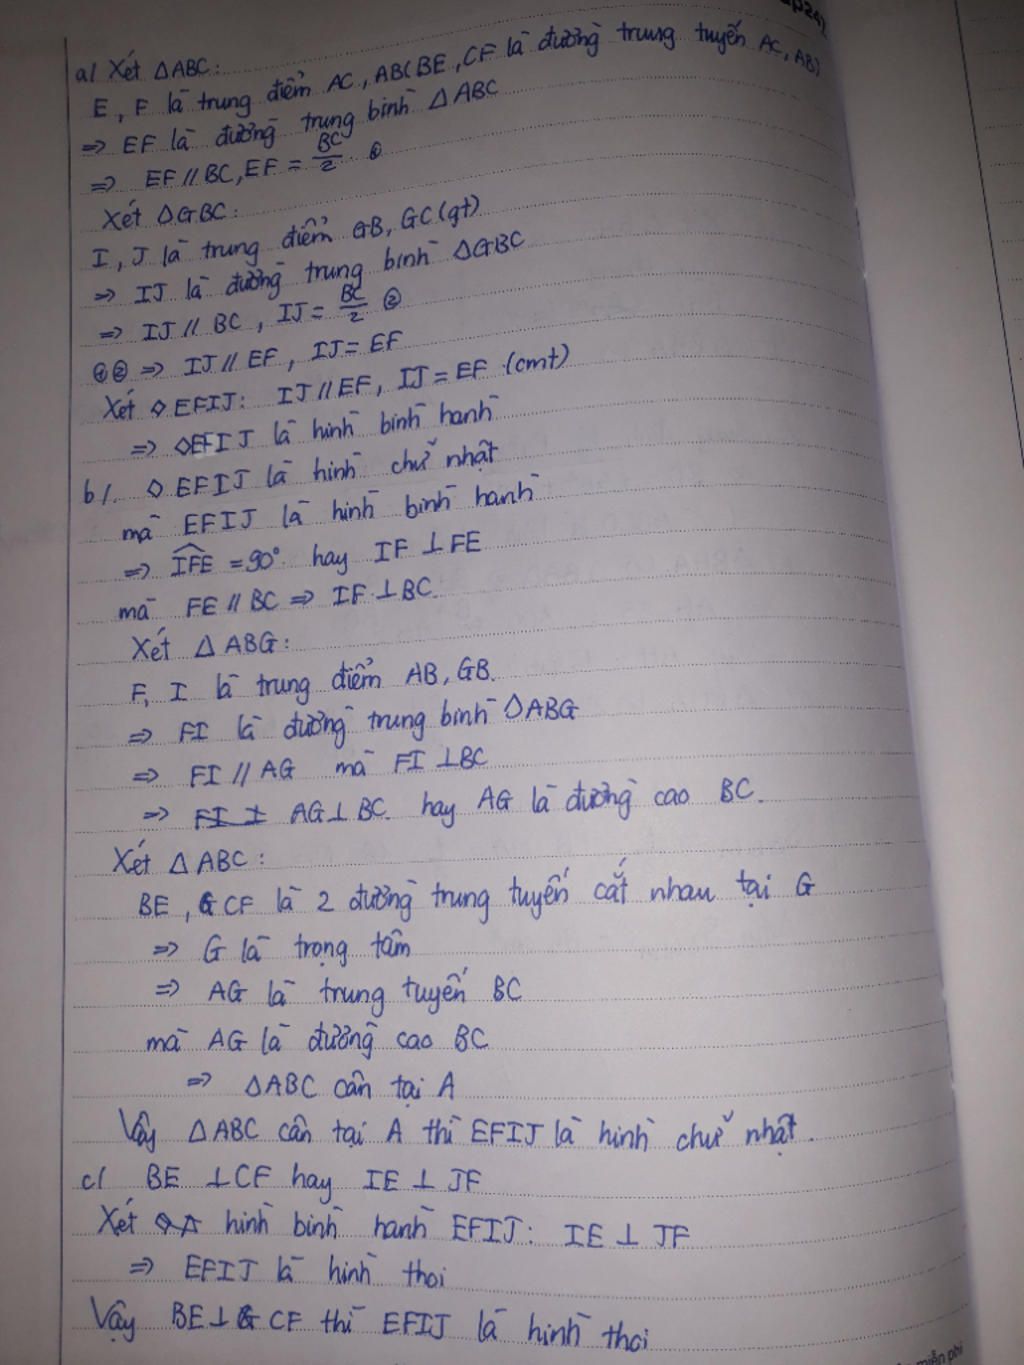 p24)
a/ Xét △ABC:
E, F là trung điểm AC, AB (BE, CF là đường trung tuyến AC, AB)
=> EF là đường trung bình △ABC
=> EF // BC, EF = BC/2. ①
Xét △GBC:
I, J là trung điểm GB, GC (gt)
=> IJ là đường trung bình △GBC
=> IJ // BC, IJ = BC/2 ②
①② => IJ // EF, IJ = EF
Xét ◇EFIJ: IJ // EF, IJ = EF (cmt)
=> ◇EFIJ là hình bình hành
b/. ◇EFIJ là hình chữ nhật
mà EFIJ là hình bình hành
=> IFE = 90° hay IF ⊥ FE
mà FE // BC => IF ⊥ BC.
Xét △ABG:
F, I là trung điểm AB, GB.
=> FI là đường trung bình △ABG
=> FI // AG mà FI ⊥ BC
=> FI ⊥ AG ⊥ BC. hay AG là đường cao BC.
Xét △ABC:
BE, CF là 2 đường trung tuyến cắt nhau tại G
=> G là trọng tâm
=> AG là trung tuyến BC
mà AG là đường cao BC
=> △ABC cân tại A
Vậy △ABC cân tại A thì EFIJ là hình chữ nhật.
c/ BE ⊥ CF hay IE ⊥ JF
Xét hình bình hành EFIJ: IE ⊥ JF
=> EFIJ là hình thoi
Vậy BE ⊥ CF thì EFIJ là hình thoi
miễn phí